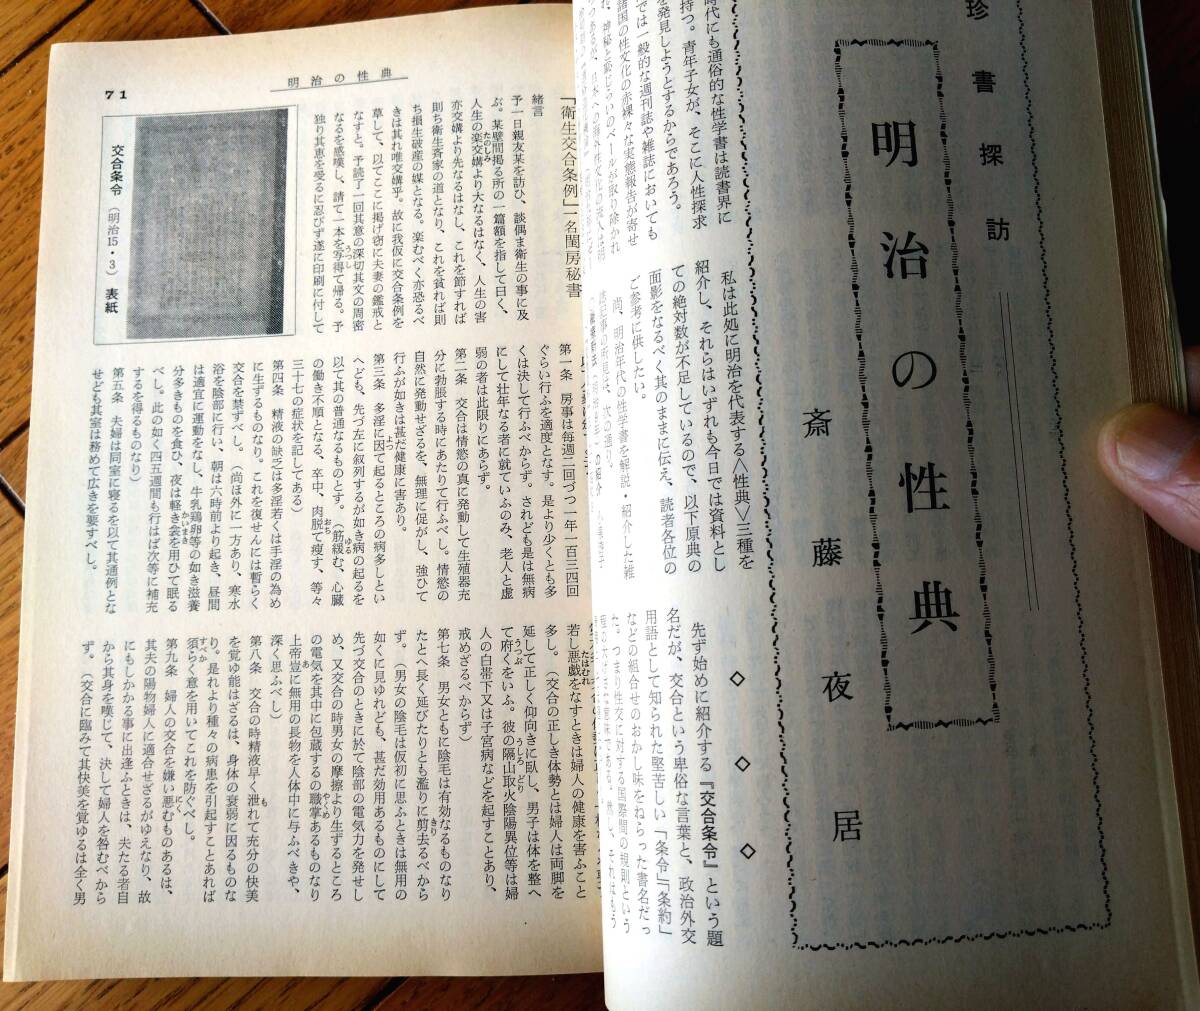 珍書探訪
明治の性典
斎藤夜居
時代にも通俗的な性学書は読書界に
持つ。青年子女が、そこに人性探求
を発見しようとするからであろう。
では一般的な週刊誌や雑誌においても
諸国の性文化の赤裸々な実態報告が寄せ
私は此処に明治を代表する〈性典〉三種を
紹介し、それらはいずれも今日では資料とし
ての絶対数が不足しているので、以下原典の
面影をなるべく其のままに伝え、読者各位の
ご参考に供したい。
尚、明治年代の性学書を解説・紹介した雑
◇ ◇ ◇
先ず始めに紹介する『交合条令』という題
名だが、交合という卑俗な言葉と、政治外交
用語として知られた堅苦しい「条令」「条約」
などの組合せのおかし味をねらった書名だっ
た。つまり性交に対する国際間の規則という
明治の性典
71
「衛生交合条例」一名閨房秘書
緒言
予一日親友某を訪ひ、談偶ま衛生の事に及
ぶ。某壁間掲る所の一篇額を指して曰く、
人生の楽交媾より大なるはなく、人生の害
亦交媾より先なるはなし、これを節すれば
則ち衛生斉家の道となり、これを貧れば則
ち損生破産の媒となる。楽むべく亦恐るべ
きは其れ唯交媾乎。故に我仮に交合条例を
草して、以てここに掲げ窃に夫妻の鑑戒と
なすと。予読了一回其意の深切其文の周密
なるを感嘆し、請て一本を写得て帰る。予
独り其恵を受るに忍びず遂に印刷に付して
交合条令(明治15・3)表紙
第一条 房事は毎週二回づつ一年一百三四回
ぐらい行ふを適度となす。是より少くとも多
くは決して行ふべからず。されども是は無病
にして壮年なる者に就ていふのみ、老人と虚
弱の者は此限りにあらず。
第二条 交合は情慾の真に発動して生殖器充
分に勃脹する時にあたりて行ふべし。情慾の
自然に発動せざるを、無理に促がし、強ひて
行ふが如きは甚だ健康に害あり。
第三条 多淫に因て起るところの病多しとい
へども、先づ左に叙列するが如き病の起るを
以て其の普通なるものとす。(筋緩む、心臓
の働き不順となる、卒中、肉脱て瘦す、等々
三十七の症状を記してある)
第四条 精液の缺乏は多淫若くは手淫の為め
に生ずるものなり。これを復せんには暫らく
交合を禁ずべし。(尚ほ外に一方あり、寒水
浴を陰部に行い、朝は六時前より起き、昼間
は適宜に運動をなし、牛乳鶏卵等の如き滋養
分多きものを食ひ、夜は軽き衾を用ひて眠る
べし。此の如く四五週間も行はば次等に補充
するを得るものなり)
第五条 夫婦は同室に寝るを以て其通例とな
せども其室は務めて広きを要すべし。
若し悪戯をなすときは婦人の健康を害ふこと
多し。(交合の正しき体勢とは婦人は両脚を
延して正しく仰向きに臥し、男子は体を整へ
て府くをいふ。彼の隔山取火陰陽異位等は婦
人の白帯下又は子宮病などを起すことあり、
戒めざるべからず)
第七条 男女ともに陰毛は有効なるものなり
たとへ長く延びたりとも濫りに剪去るべから
ず。(男女の陰毛は仮初に思ふときは無用の
如くに見ゆれども、甚だ効用あるものにして
先づ交合のときに於て陰部の電気力を発せし
め、又交合の時男女の摩擦より生ずるところ
の電気を其中に包蔵するの職掌あるものなり
上帝豈に無用の長物を人体中に与ふべきや、
深く思ふべし)
第八条 交合の時精液早く泄れて充分の快美
を覚ゆ能はざるは、身体の衰弱に因るものな
り。是れより種々の病患を引起すことあれば
須らく意を用いてこれを防ぐべし。
第九条 婦人の交合を嫌い悪むものあるは、
其夫の陽物婦人に適合せざるがゆえなり、故
にもしかかる事に出逢ふときは、夫たる者自
から其身を嘆じて、決して婦人を咎むべから
ず。(交合に臨みて其快美を覚ゆるは全く男